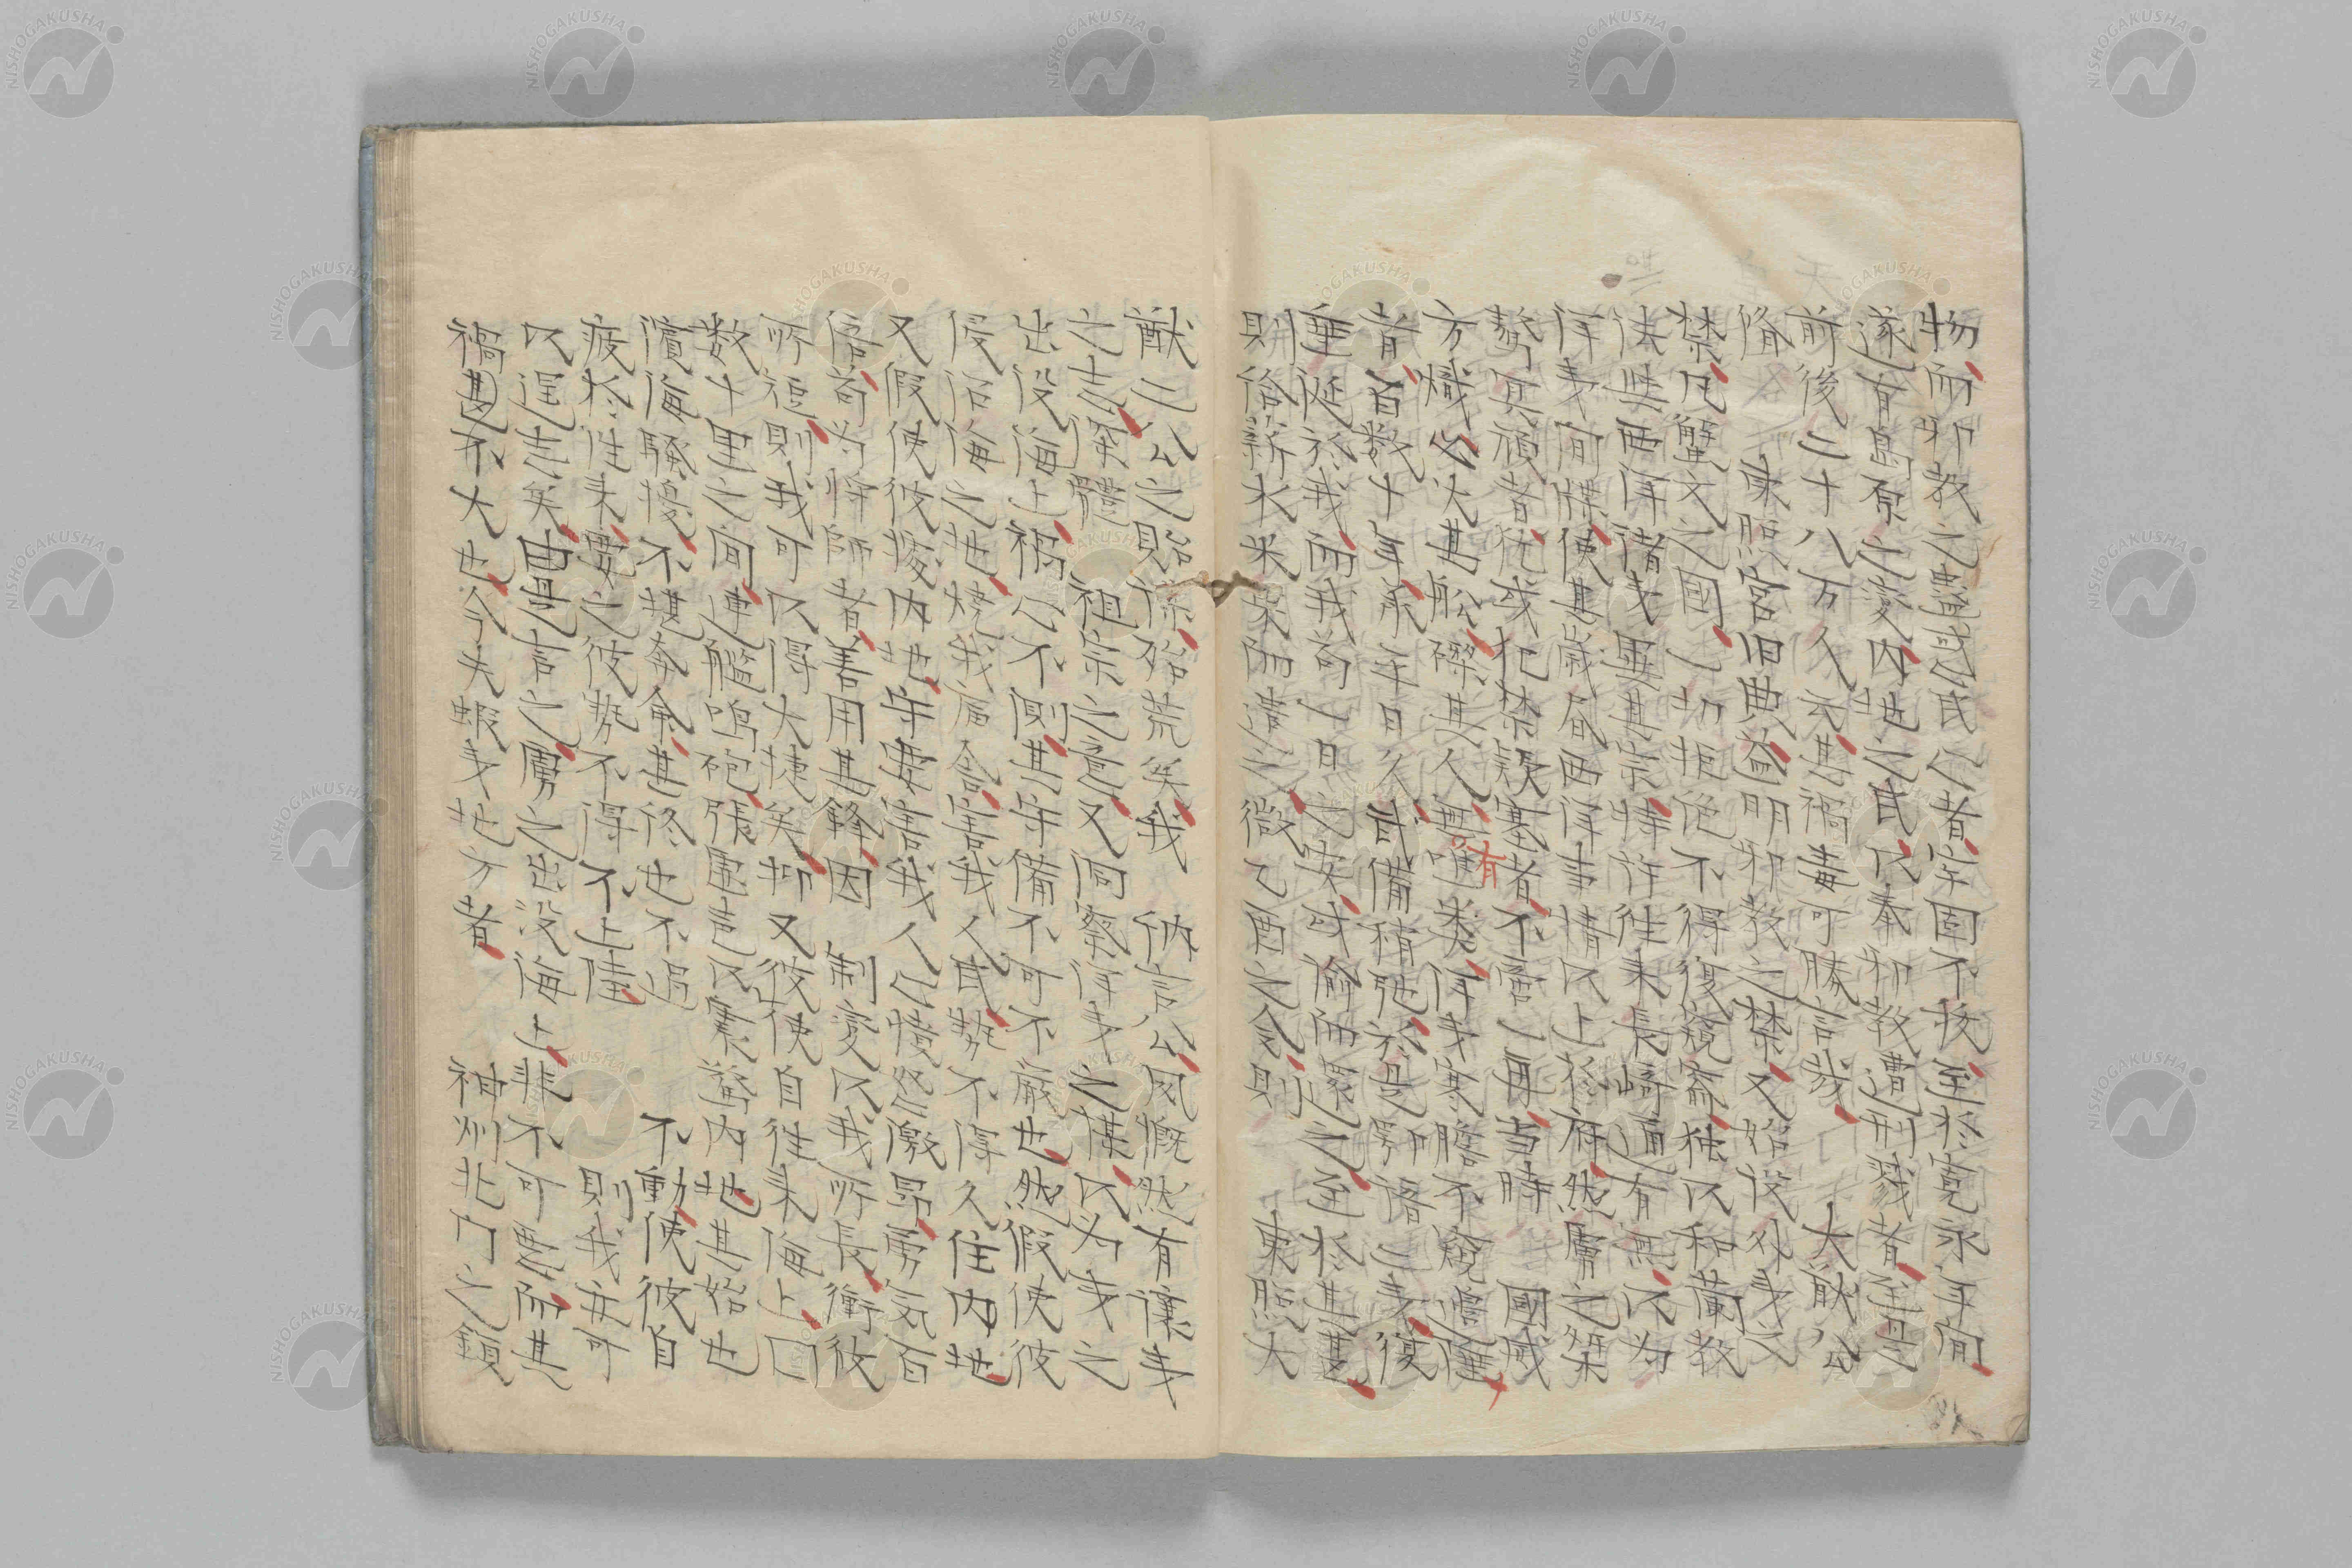 物而邪教之蠱惑民心者牢固不拔至於寛永年間
遂有島原之変内地之民以奉邪教遭刑戮者至
前後二十八万人云其禍毒可勝言哉 大猷公
脩 東照宮旧典益明邪教之禁又始設外夷之
禁凡蟹文之国一切拒絶不得復窺窬独以和蘭教
法与西洋諸夷異其宗特許往来長崎通有無以為
洋夷間諜使其歳届西洋事情以上於府然虜之桀
驁冥頑者犹或犯禁款塞者不啻一再当時 国威
方熾必火其船磔其人無有噍類洋夷寒膽不窺邊陲
者百数十年承平日久武備稍弛於是
垂涎於我而我苟一日之安或偷而還之至於其
則給薪水米菜而遣之微乙酉之令則 東照大
猷二公之貽 始荒矣我 納言公夙慨然有攘夷
之志深體 祖宗之意又洞察洋夷之謀以为夷之
出没海上禍心不測其守備不可不嚴也然假使彼
侵沿海之地焼我廬舎害我人民勢不得久住内地
又假使彼據内地年要害我人心憤怒激昂勇気百
倍苟为将師者善用其鋒因 制変以我所長衝彼
所短則我可以得大捷矣抑又彼使自往来海上
数十里之間連艦鳴砲張虚声以震驚内地其始也
濱海騒擾不堪奔命其終也不過 不動使彼自
疲於往来要之彼勢不得不上陸 則我安可
以逞志矣由是言之虜之出没海上非不可悪而其
禍甚不大也今夫蝦夷地方者 神州北門之鎖